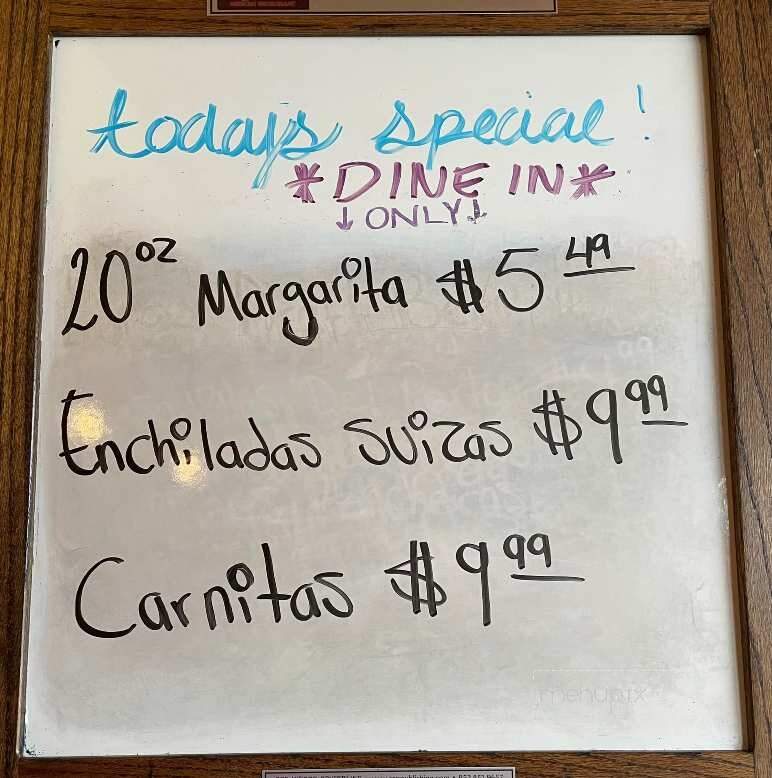 todays special!
*DINE IN*
↓ ONLY ↓
20 oz Margarita $5 49
Enchiladas Suizas $9 99
Carnitas $9 99
menupix